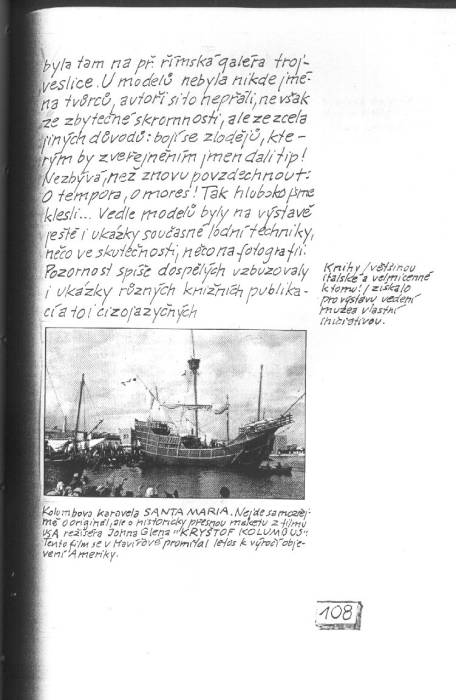 byla tam na př. římská galéra troj-
veslice. U modelů nebyla nikde jmé-
na tvůrců, autoři si to nepřáli, ne však
ze zbytečné skromnosti, ale ze zcela
jiných důvodů: bojí se zlodějů, kte-
rým by zveřejněním jmen dali tip!
Nezbývá, než znovu povzdechnout:
O tempora, o mores! Tak hluboko jsme
klesli... Vedle modelů byly na výstavě
ještě i ukázky současné lodní techniky,
něco ve skutečnosti, něco na fotografii.
Pozornost spíše dospělých vzbuzovaly
i ukázky různých knižních publika-
cí a to i cizojazyčných
Knihy /většinou
italské a velmi cenné
k tomu!/ získalo
pro výstavu vedení
muzea vlastní
iniciativou.
Kolumbova karavela SANTA MARIA. Nejde samozřej-
mě o originál, ale o historicky přesnou maketu z filmu
USA režiséra Johna Glena "KRYŠTOF KOLUMBUS".
Tento film se v Havířově promítal letos k výročí obje-
vení Ameriky.
108